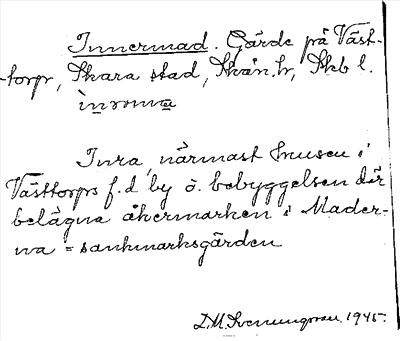 Innermad. Gärde på Väst-
-torp, Skara stad, Skån. hr, Skb l.
ìnroma
Inra, närmast husen i
Västtorps f. d. by ò. bebyggelsen där
belägna åkermarken i Mader-
na = sankmarksgärden
D.M. Svenungsson. 1945.